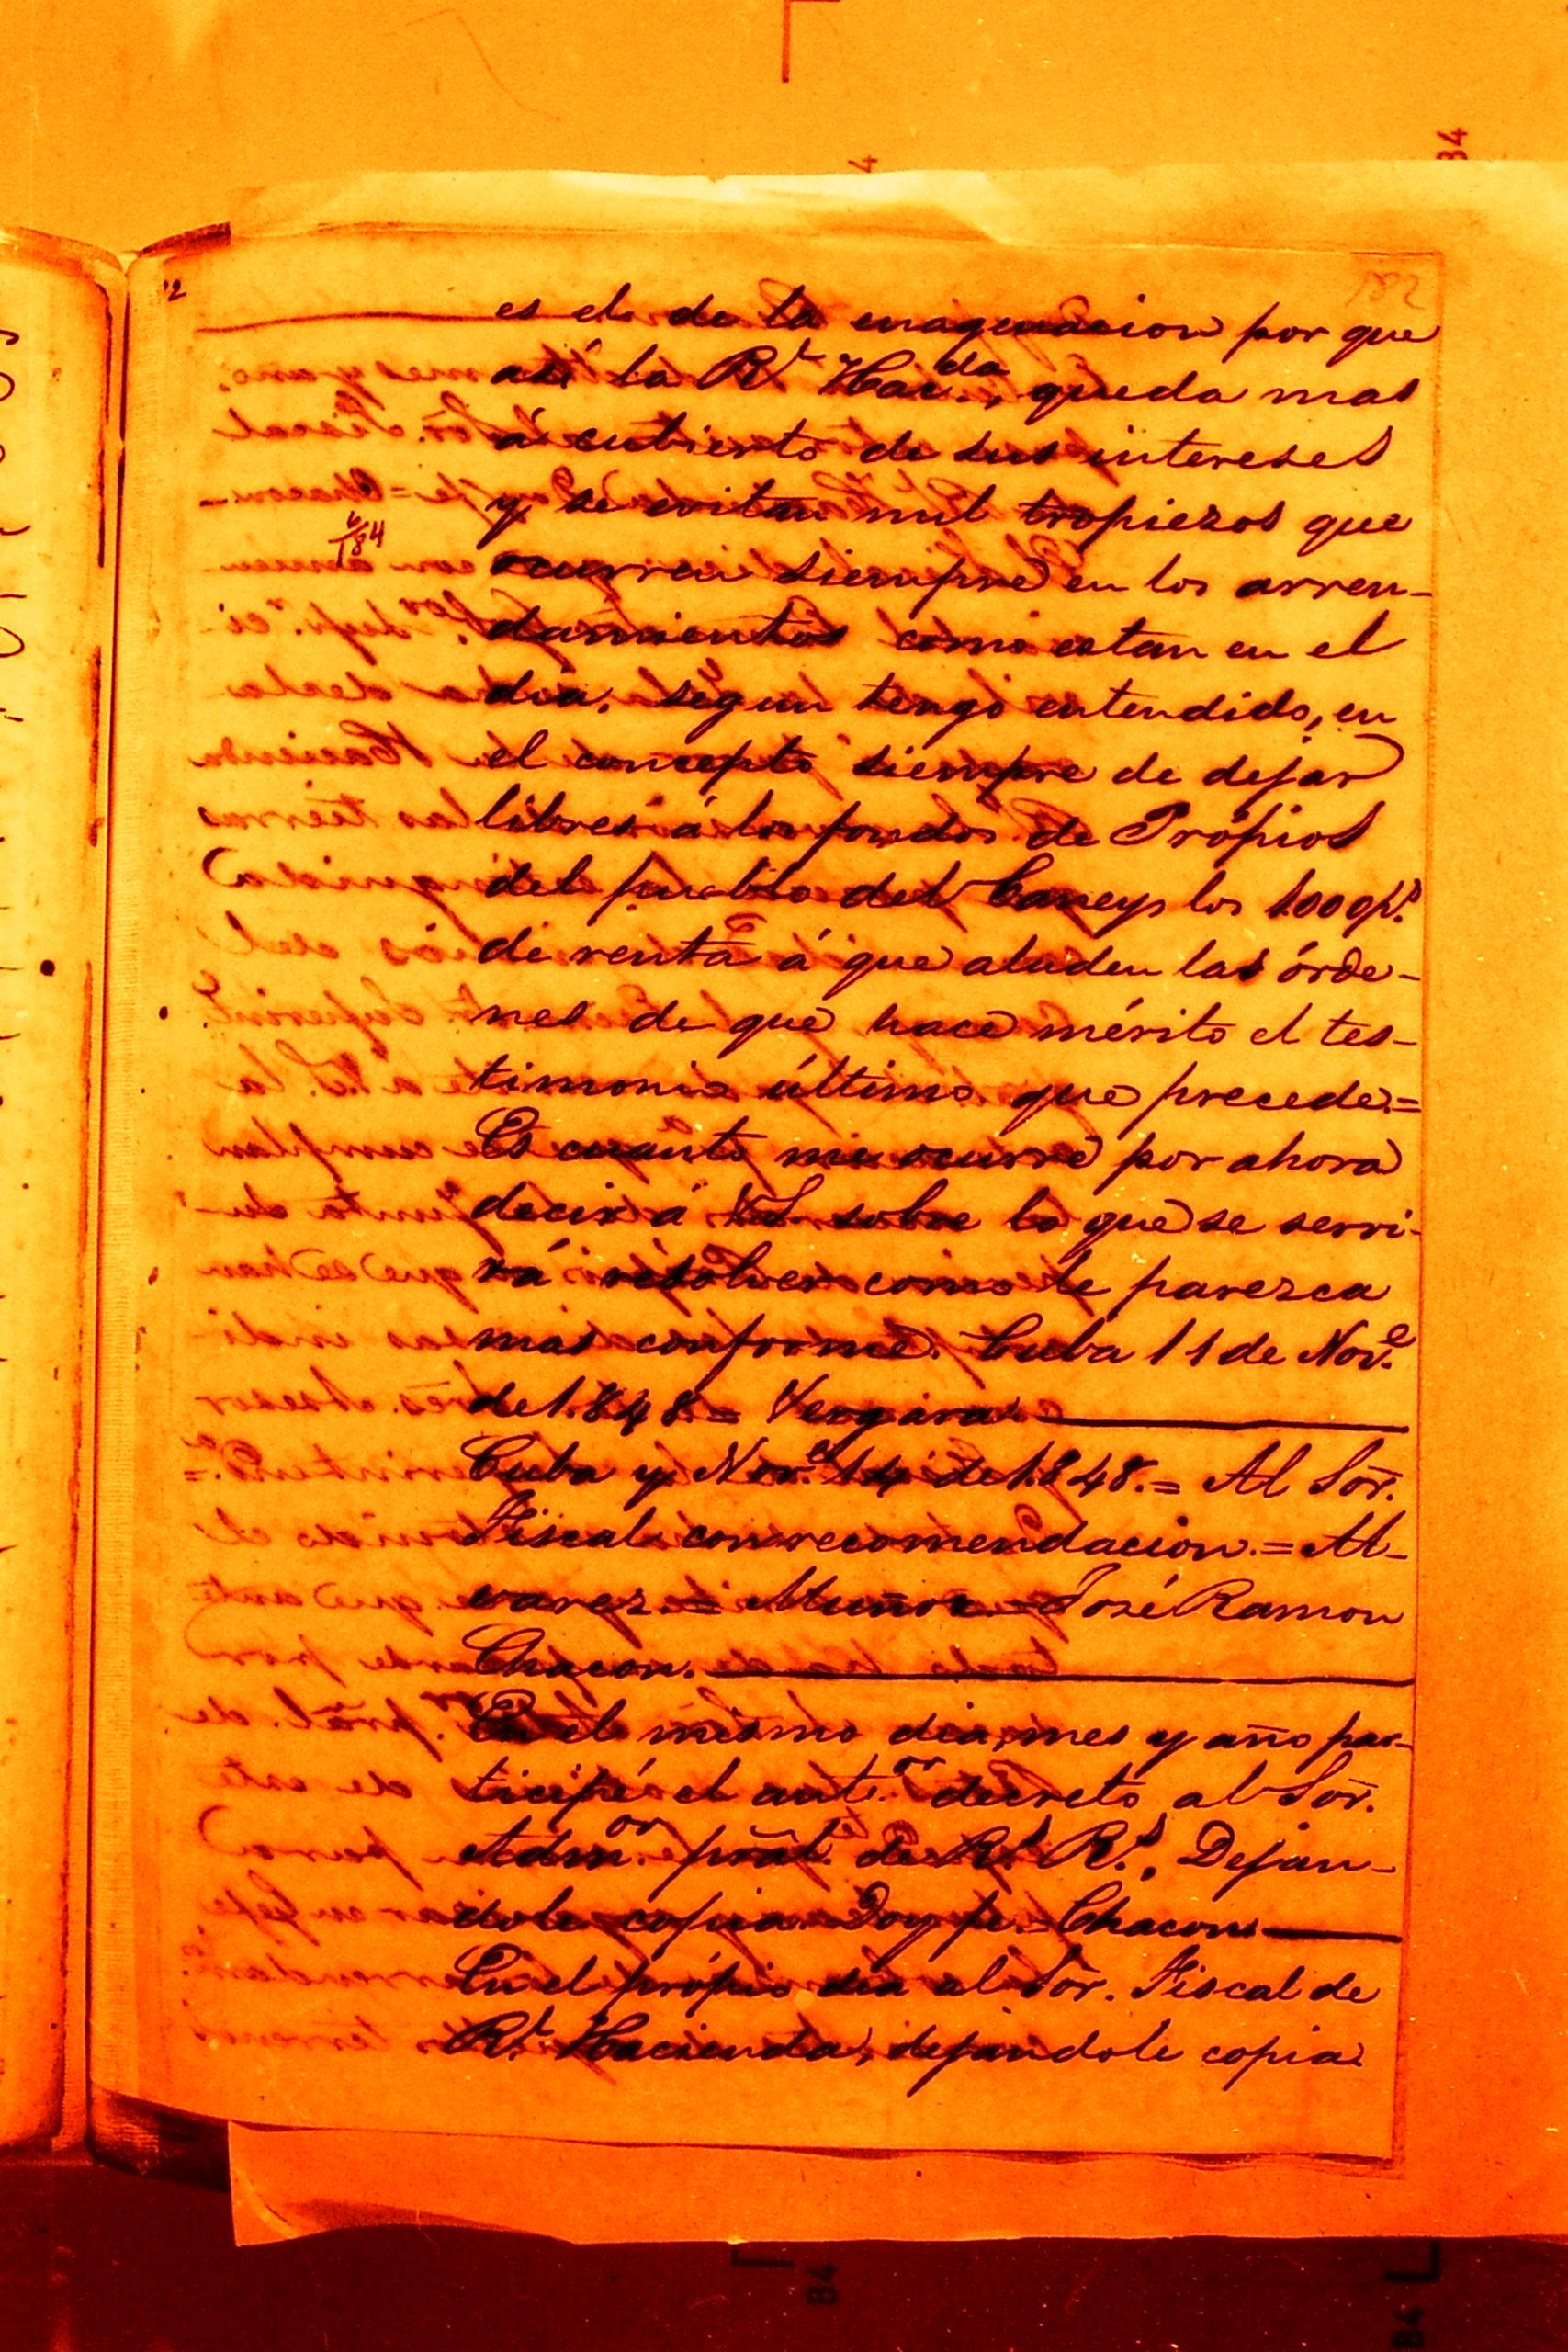 182
es el de la enagenacion por que
asi la Rl. Hacda., queda mas
á cubierto de sus intereses
y se evitan mil tropiezos que
ocurren siempre en los arren-
damientos como estan en el
dia, segun tengo entendido, en
el concepto siempre de dejar
libres á los fondos de Própios
del pueblo del Caney los 1.000 ps.
de renta á que aluden las órde-
nes de que hace mérito el tes-
timonio último que precede.=
Es cuanto me ocurre por ahora
decir á VS. sobre lo que se servi-
rá resolver como le parezca
mas conforme. Cuba 11 de Nove.
de 1.848.= Vergara.
Cuba y Nove. 14 de 1.848.= Al Sōr.
Fiscal con recomendacion.= Al-
varez.= Muñoz.= José Ramon
Chacon.
En el mismo dia, mes y año par-
ticipé el anteor. decreto al Sōr.
Admor. prāl. de Rs. Rs., Dejan-
dole copia Doy fe.= Chacon
En el própio dia al Sōr. Fiscal de
Rl. Hacienda, dejandole copia
6/184
B4
B4
B4